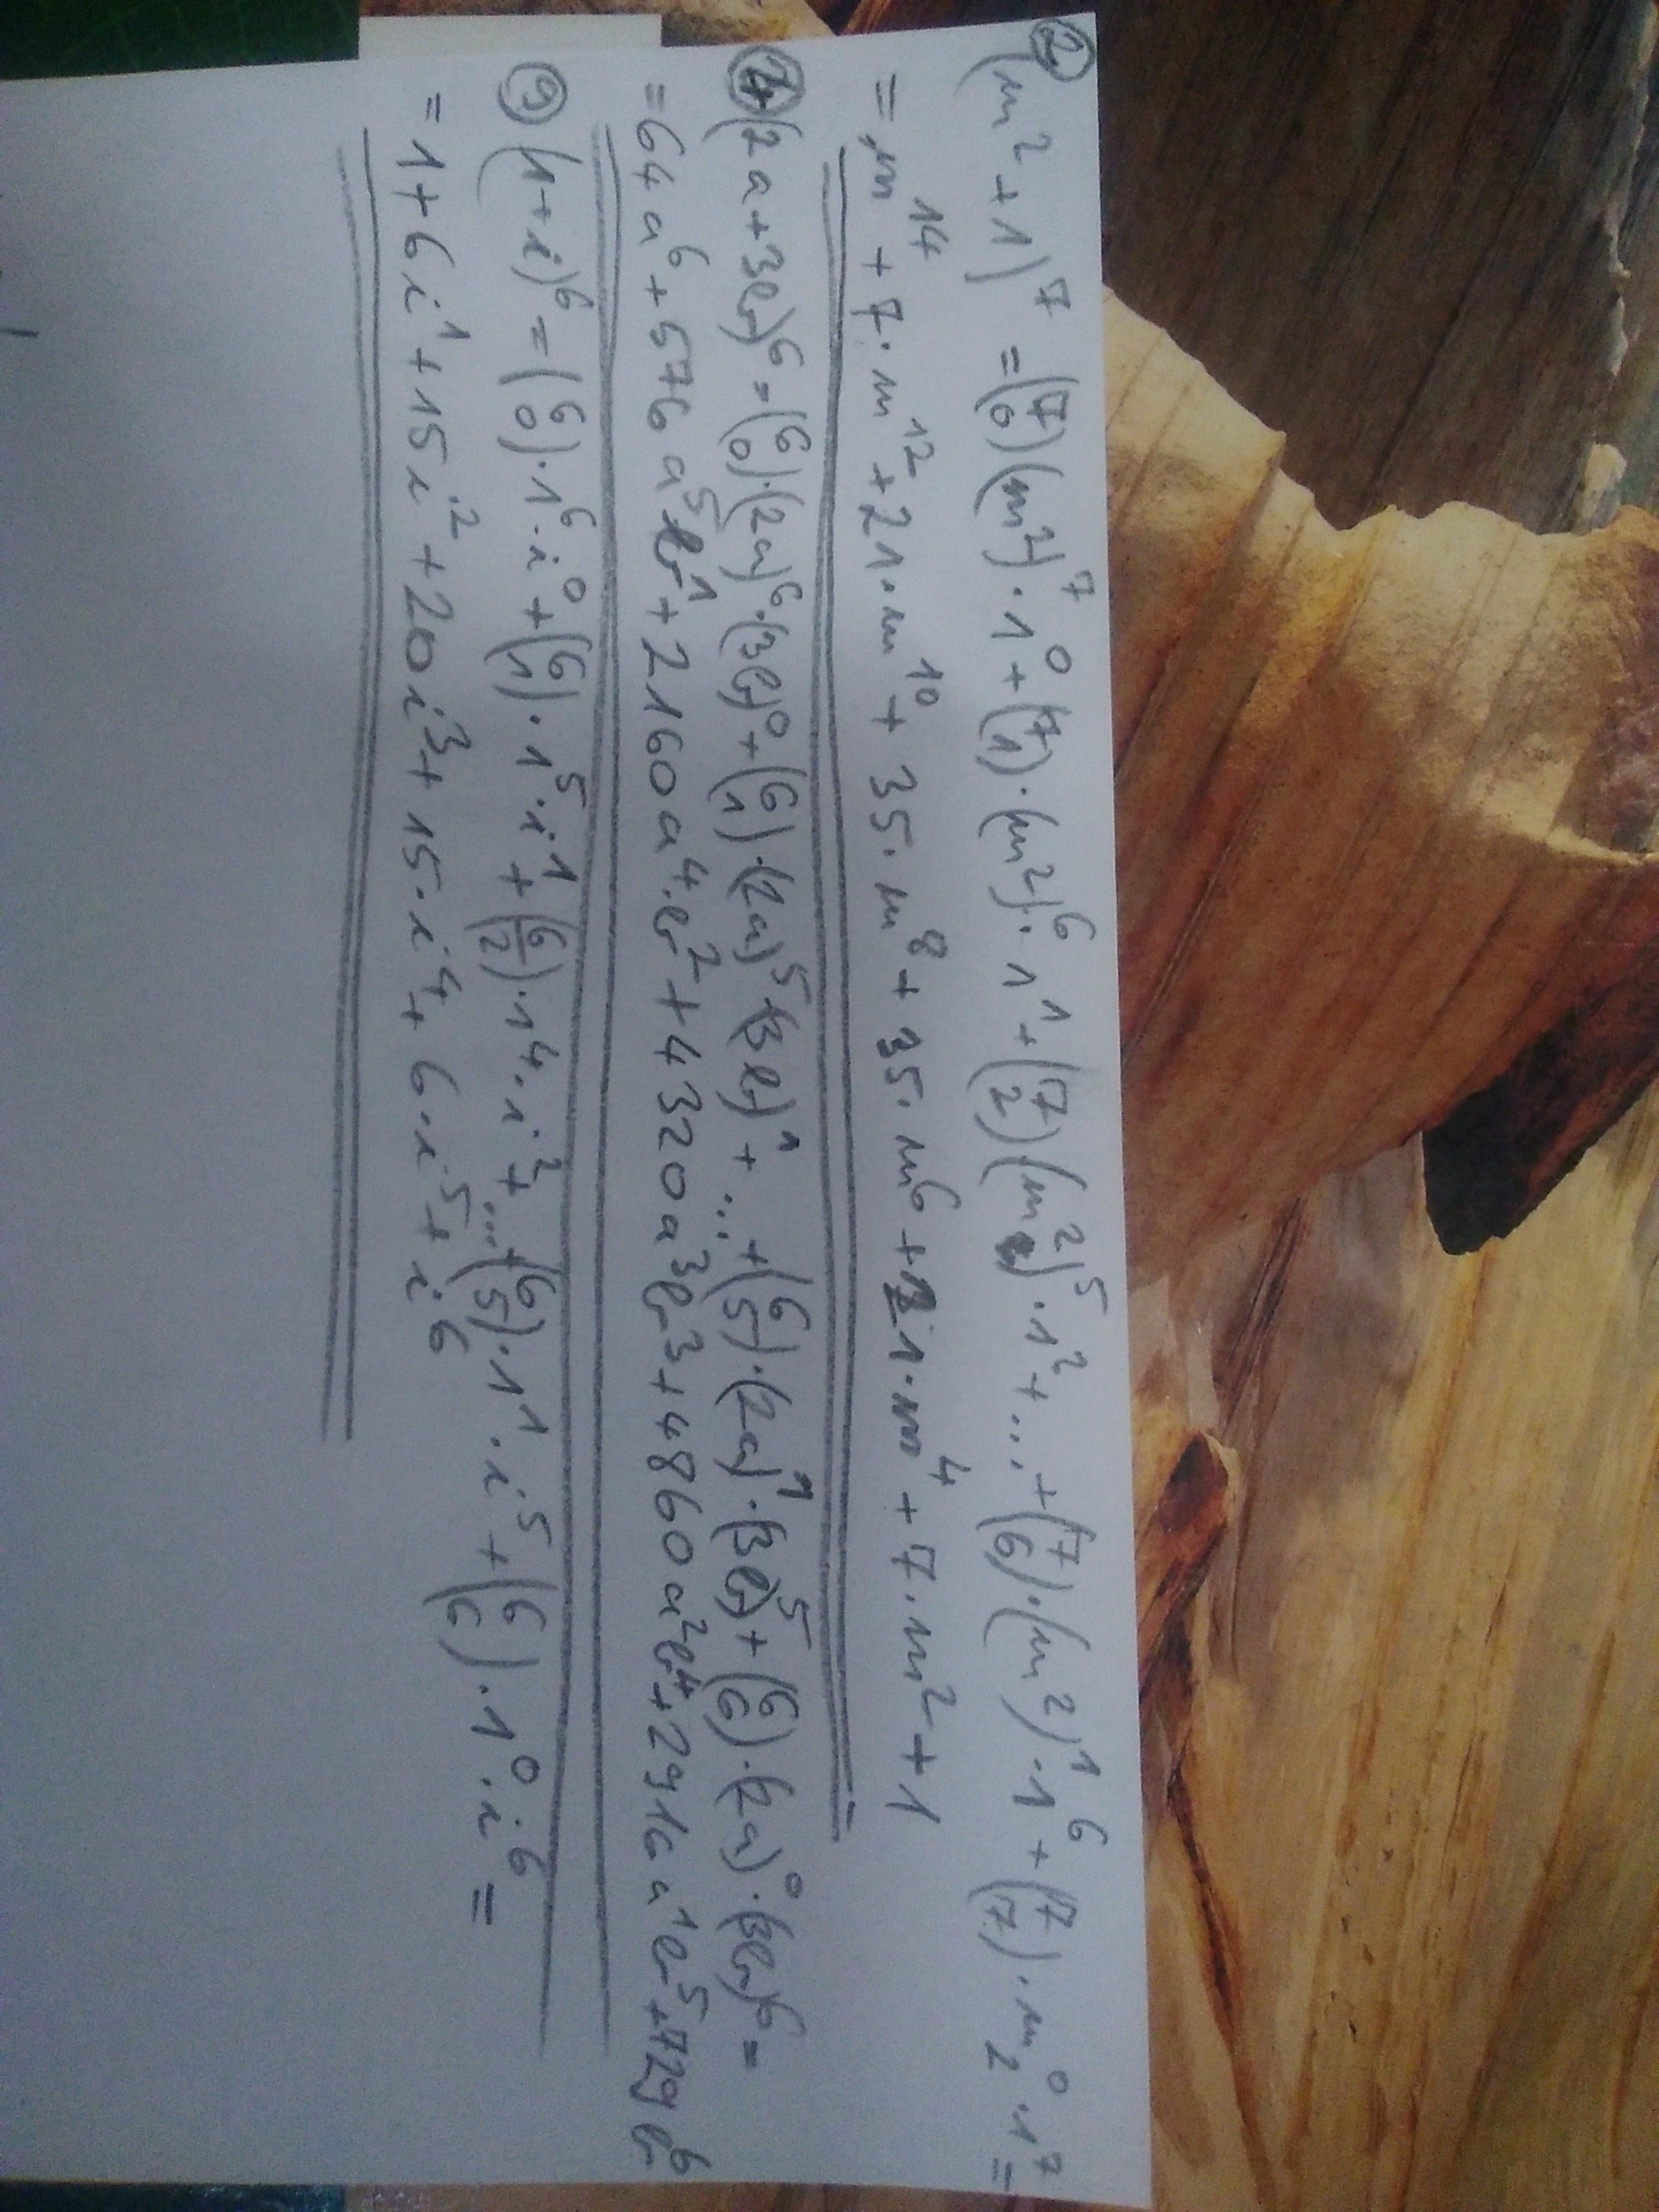 ② (m²+1)⁷ = (7 0)(m²)⁷·1⁰+(7 1)·(m²)⁶·1¹+(7 2)(m²)⁵·1²+...+(7 6)·(m²)¹·1⁶+(7 7)·m₂⁰·1⁷=
= m¹⁴+7·m¹²+21·m¹⁰+35·m⁸+35·m⁶+21·m⁴+7·m²+1
(2a+3b)⁶=(6 0)·(2a)⁶·(3b)⁰+(6 1)·(2a)⁵·(3b)¹+...+(6 5)·(2a)¹·(3b)⁵+(6 6)·(2a)⁰·(3b)⁶=
=64a⁶+576a⁵b¹+2160a⁴·b²+4320a³b³+4860a²b⁴+2916a¹b⁵+729b⁶
(1+i)⁶=(6 0)·1⁶·i⁰+(6 1)·1⁵·i¹+(6 2)·1⁴·i²+...+(6 5)·1¹·i⁵+(6 6)·1⁰·i⁶=
=1+6i¹+15i²+20i³+15·i⁴+6·i⁵+i⁶